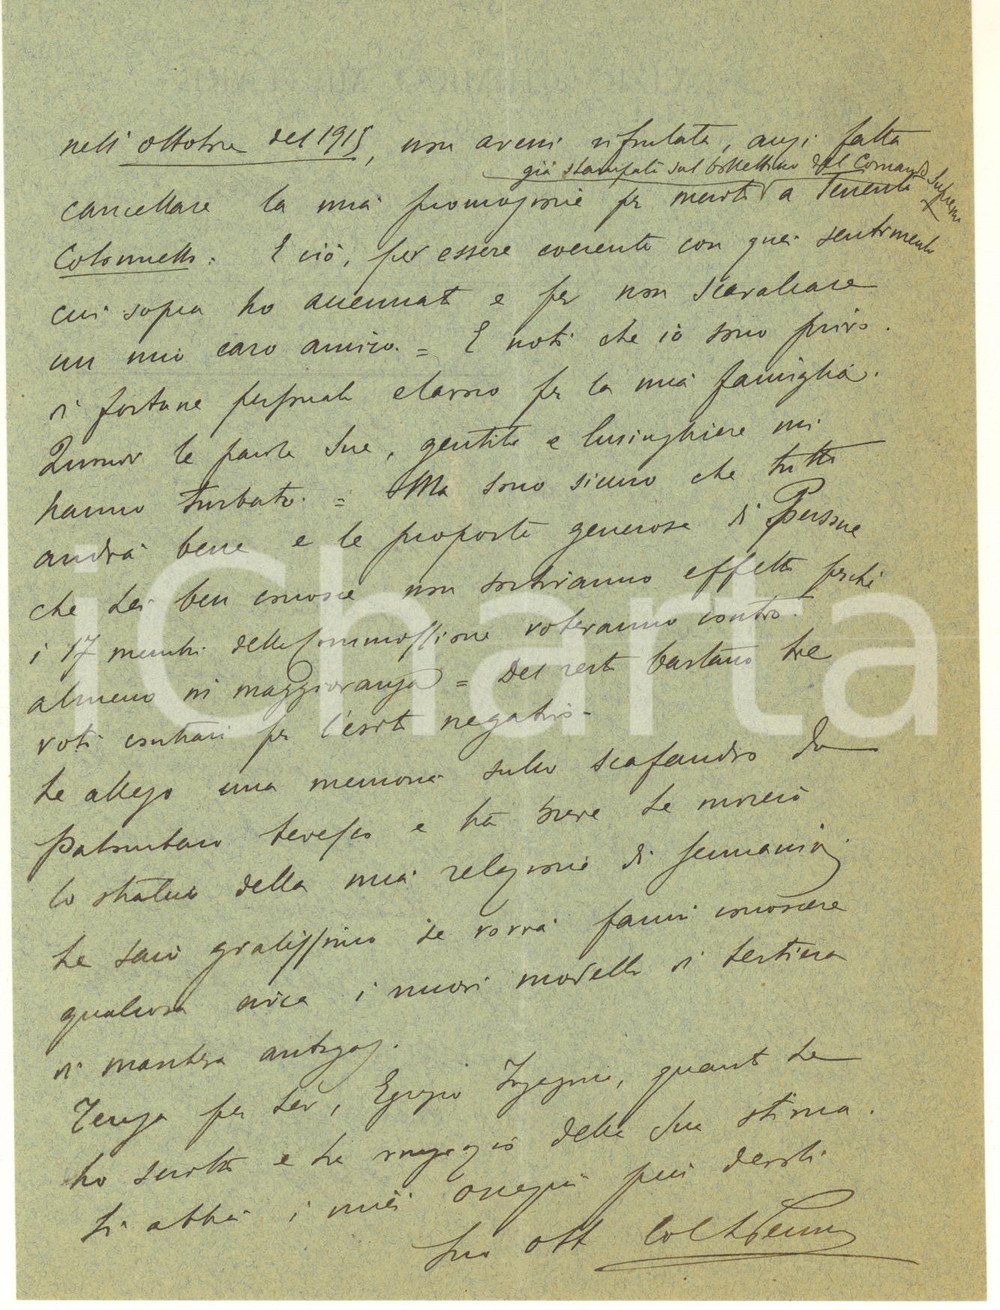 nell'ottobre del 1915, non avessi rifiutata, anzi fatta
già stampata sul bollettino del Comando Supremo
cancellare la mia promozione per meriti a Tenente
Colonnello. E ciò, per essere coerente con quei sentimenti
cui sopra ho accennato e per non scavalcare
un mio caro amico. = E noti che io sono privo
di fortune personali e lavoro per la mia famiglia.
le parole Sue, gentili e lusinghiere mi
hanno turbato. = Ma sono sicuro che tutto
andrà bene e le proposte generose di Persone
che Lei ben conosce non sortiranno effetto perché
i 17 membri della Commissione voteranno contro.
almeno in maggioranza = Del resto bastano tre
voti contrari per l'esito negativo.
Le allego una memoria sullo scafandro da
palombaro tedesco e tra breve Le invierò
lo stralcio della mia relazione di Germania.
Le sarò gratissimo se vorrà farmi conoscere
qualcosa circa i nuovi modelli di
di maschera antigas.
Tenga per Lei, Egregio Ingegnere, quanto Le
ho scritto e La ringrazio della Sua stima.
Si abbia i miei ossequi più devoti
Suo
iCharta